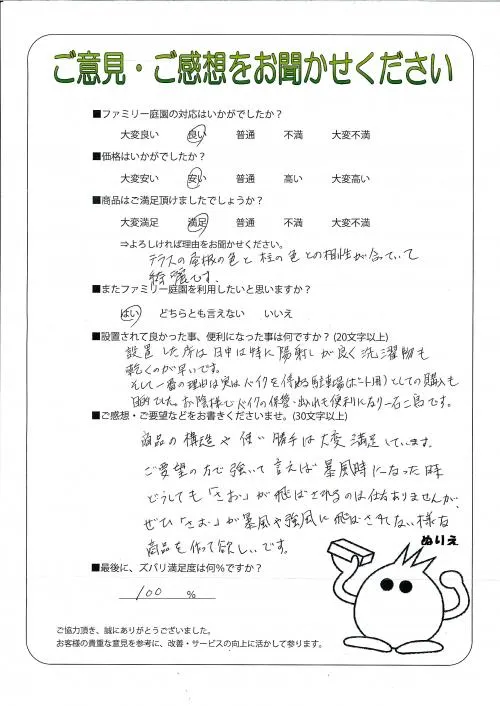 ご意見・ご感想をお聞かせください
■ファミリー庭園の対応はいかがでしたか？
大変良い 良い 普通 不満 大変不満
■価格はいかがでしたか？
大変安い 安い 普通 高い 大変高い
■商品はご満足頂けましたでしょうか？
大変満足 満足 普通 不満 大変不満
⇒よろしければ理由をお聞かせください。
テラスの屋根の色と柱の色との相性が合っていて
綺麗です。
■またファミリー庭園を利用したいと思いますか？
はい どちらとも言えない いいえ
■設置されて良かった事、便利になった事は何ですか？(20文字以上)
設置した所は日中は特に陽射しが良く洗濯物も
乾くのが早いです。
そして一番の理由は実はバイクを停める駐車場としての購入も
目的でした。お陰様でバイクの保管・出し入れも便利になり一石二鳥です。
■ご感想・ご要望などをお書きくださいませ。(30文字以上)
商品の構造や使い勝手は大変満足しています。
ご要望の方で強いて言えば暴風時になった時
どうしても「さお」が飛ばされるのは仕方ありませんが、
ぜひ「さお」が暴風や強風に飛ばされない様な
商品を作って欲しいです。
■最後に、ズバリ満足度は何％ですか？
100 %
ぬりえ
ご協力頂き、誠にありがとうございました。
お客様の貴重な意見を参考に、改善・サービスの向上に活かして参ります。